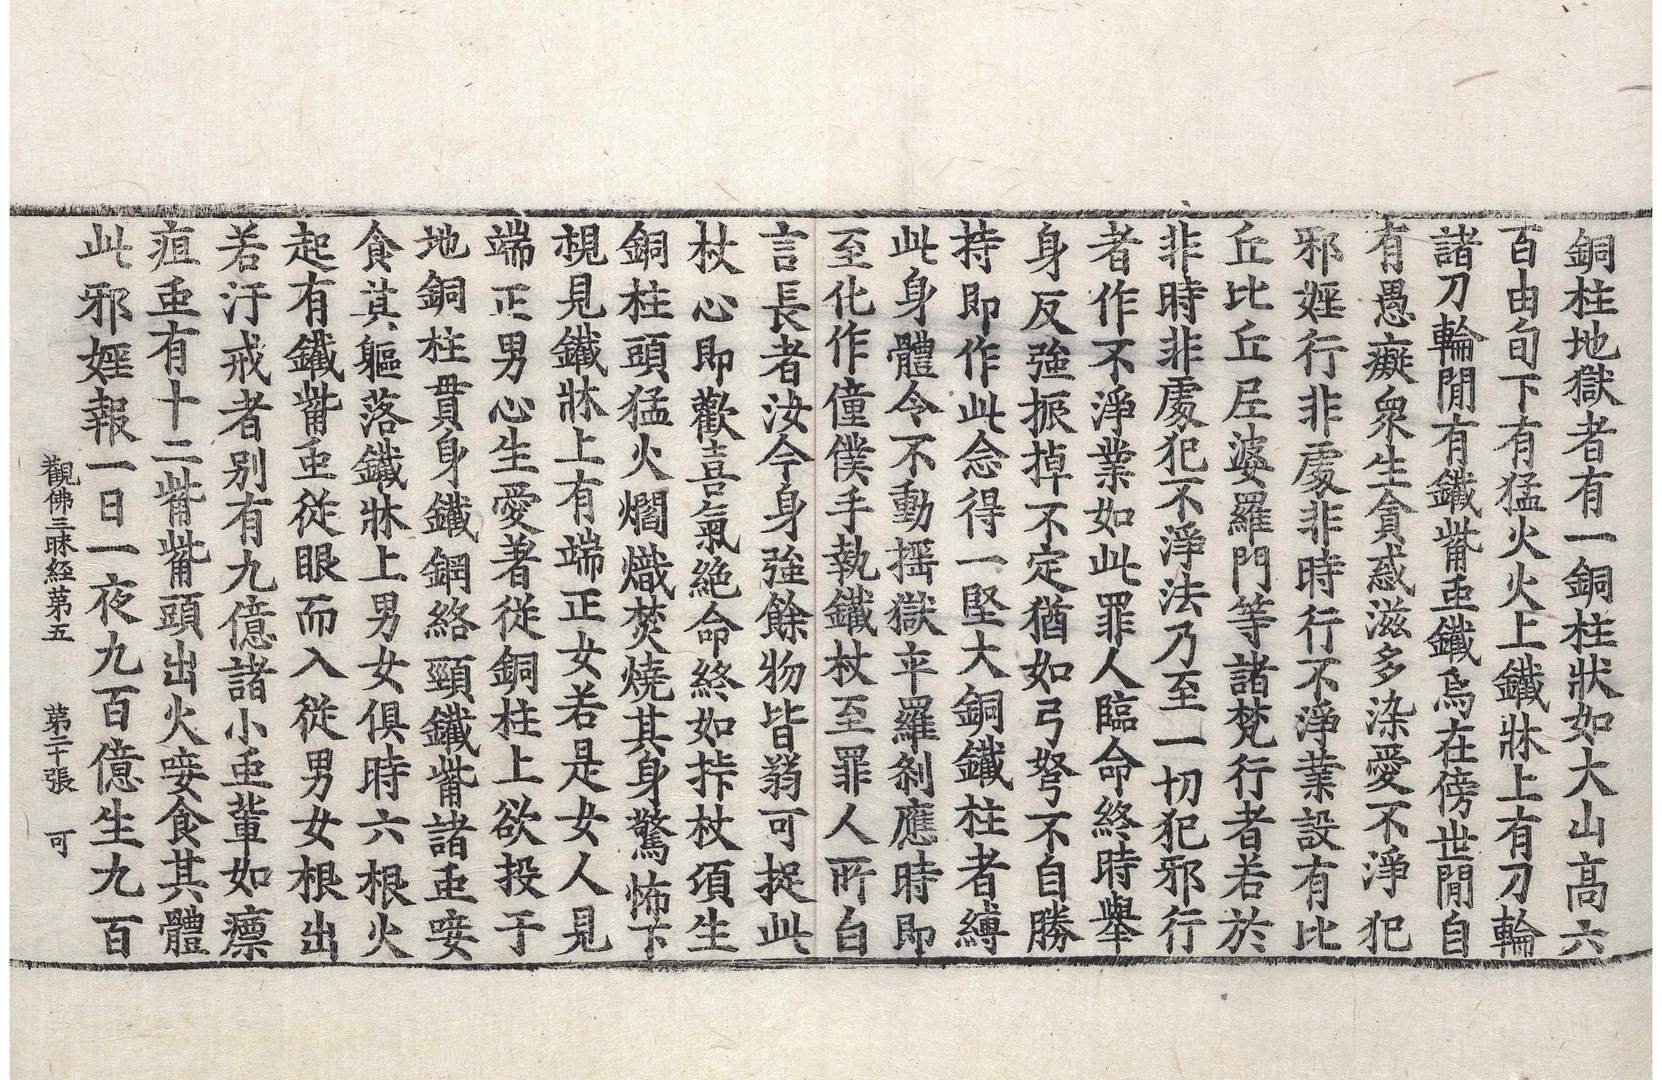 銅柱地獄者有一銅柱狀如大山高六
百由旬下有猛火火上鐵牀上有刀輪
諸刀輪閒有鐵觜䖝鐵烏在傍世閒自
有愚癡衆生貪惑滋多染愛不淨犯
邪婬行非處非時行不淨業設有比
丘比丘尼婆羅門等諸梵行者若於
非時非處犯不淨法乃至一切犯邪行
者作不淨業如此罪人臨命終時舉
身反強振掉不定猶如弓弩不自勝
持即作此念得一堅大銅鐵柱者縛
此身體令不動搖獄卒羅刹應時即
至化作僮僕手執鐵杖至罪人所白
言長者汝今身強餘物皆蒻可捉此
杖心即歡喜氣絶命終如挊杖須生
銅柱頭猛火爓熾焚燒其身驚怖下
視見鐵牀上有端正女若是女人見
端正男心生愛著從銅柱上欲投于
地銅柱貫身鐵鋼絡頸鐵觜諸䖝唼
食其軀落鐵牀上男女俱時六根火
起有鐵觜䖝從眼而入從男女根出
若汙戒者別有九億諸小䖝輩如瘭
疽䖝有十二觜觜頭出火唼食其體
此邪婬報一日一夜九百億生九百
觀佛三昧経苐五 苐二十張 可